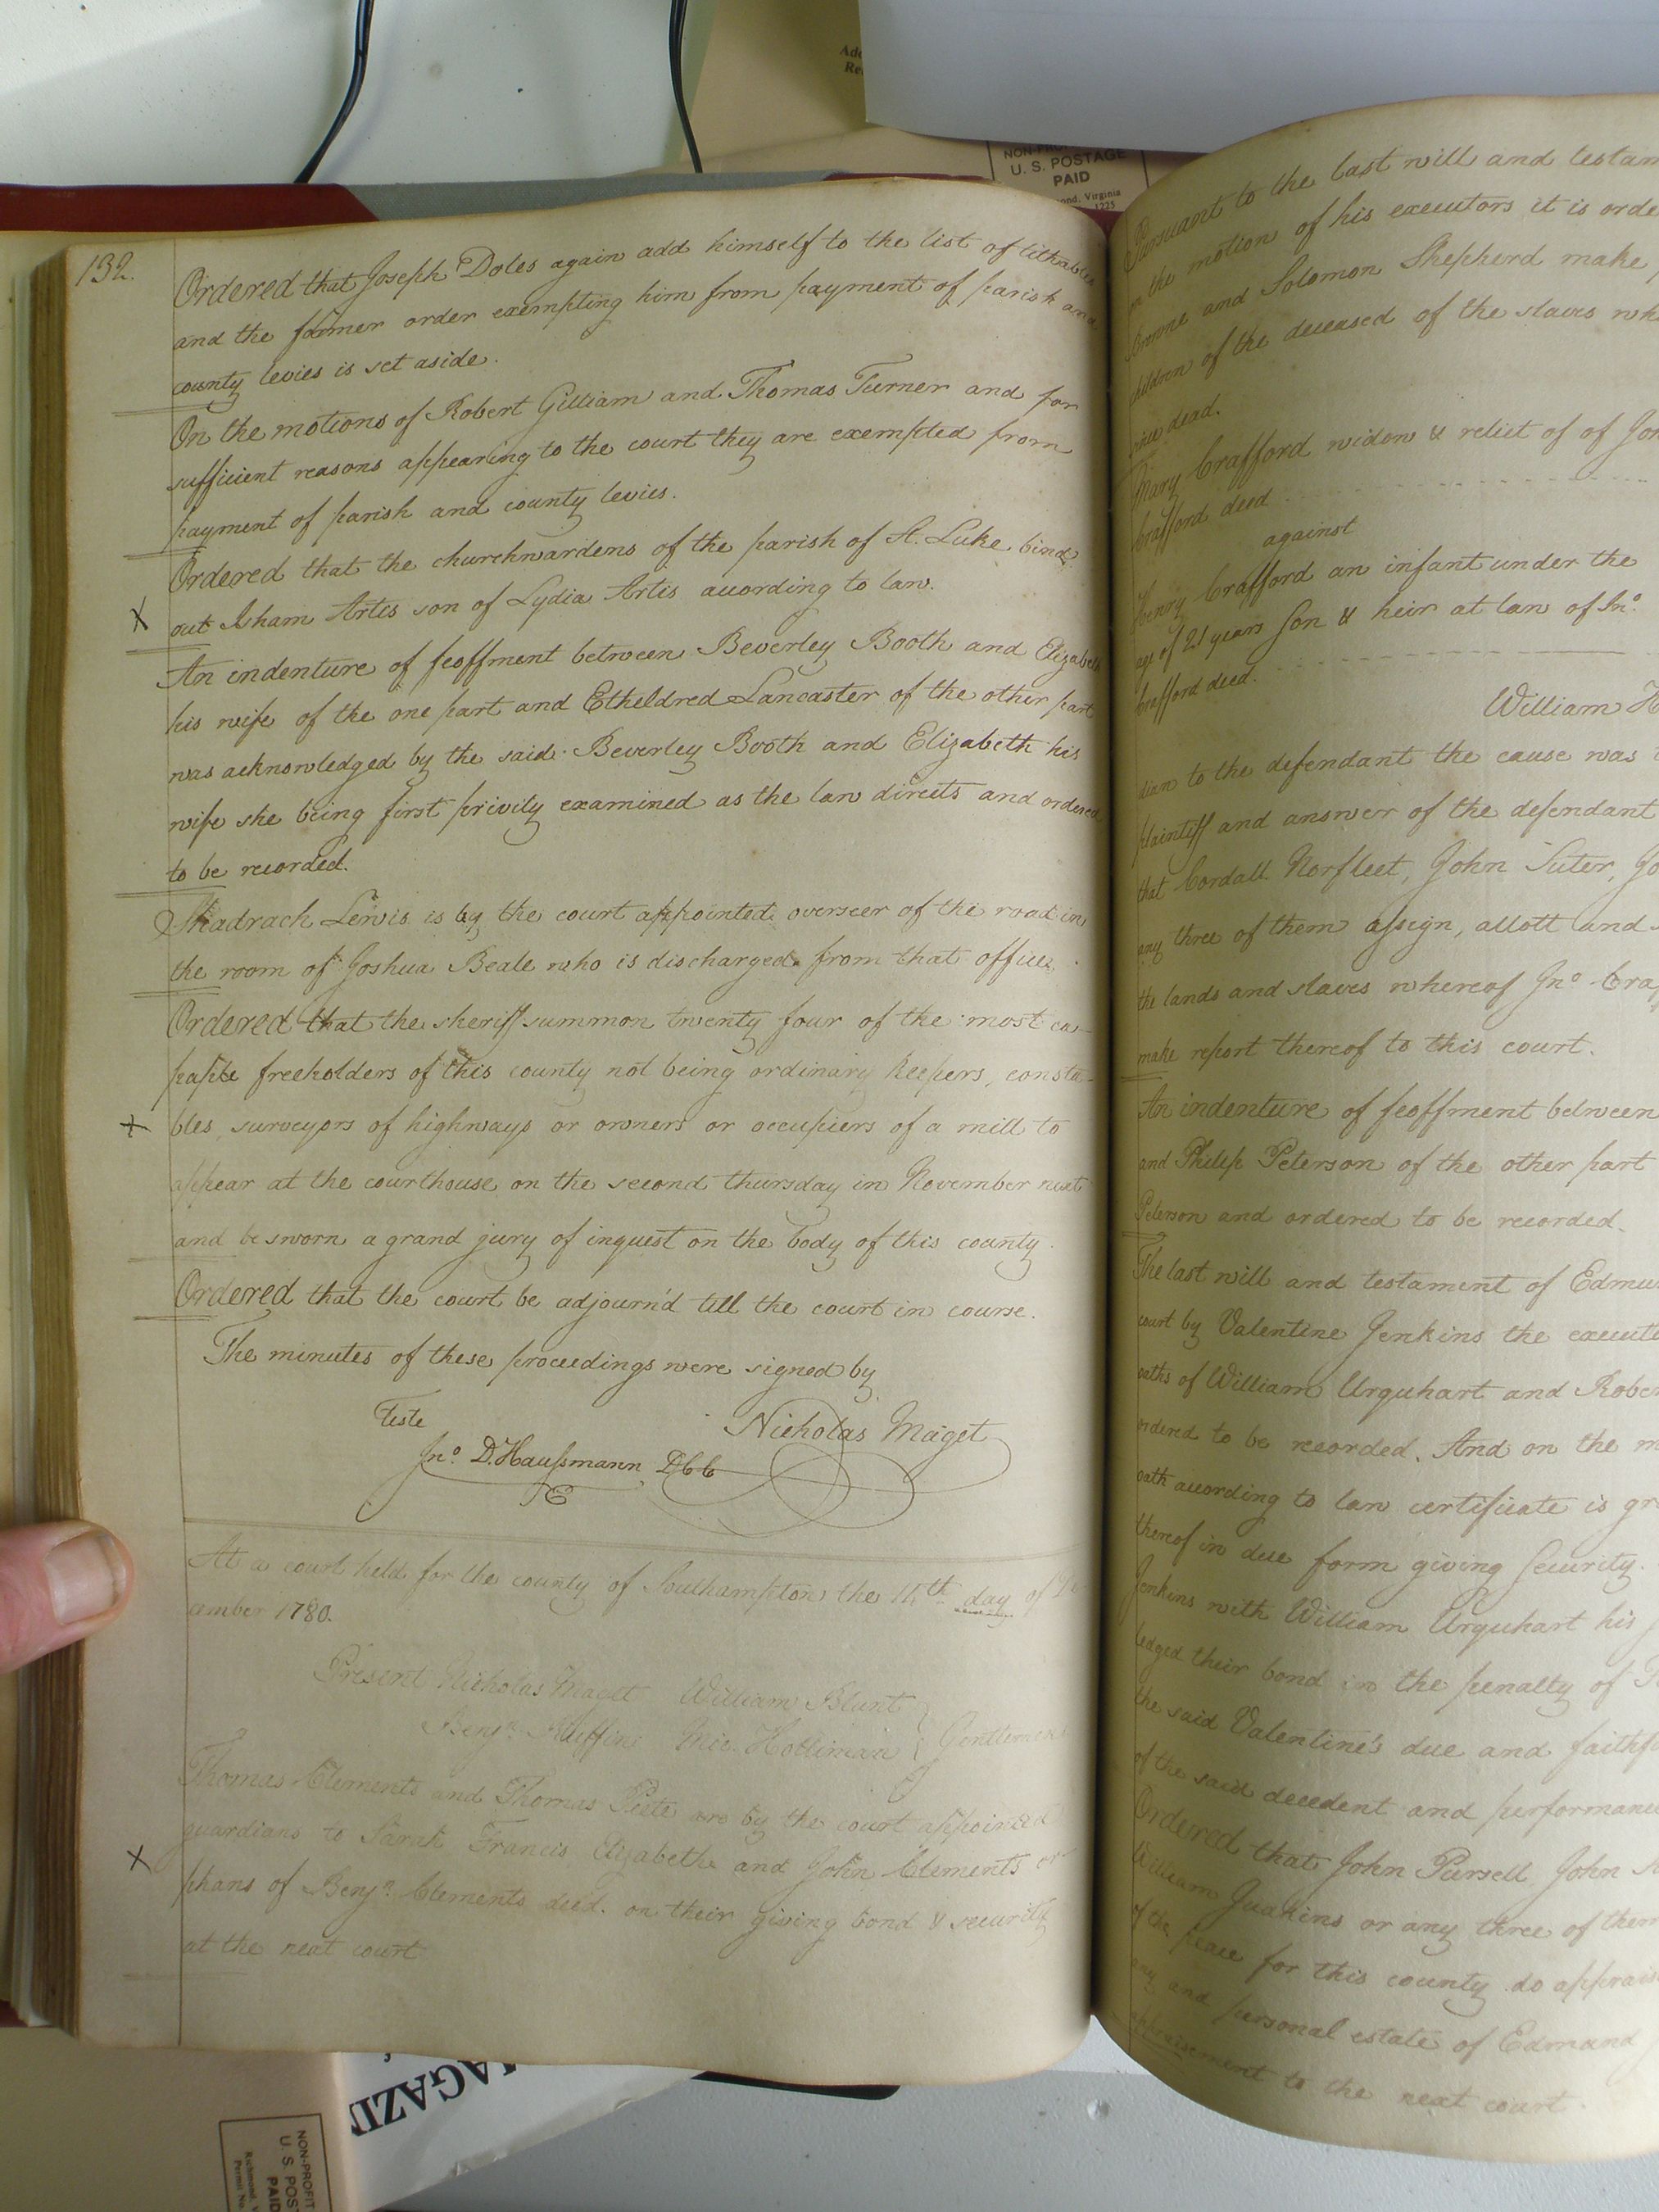 NON-PROFIT
U. S. POSTAGE
PAID
132.
Ordered that Joseph Doles again add himself to the list of tithables
and the former order exempting him from payment of parish and
county levies is set aside.
On the motions of Robert Gilliam and Thomas Turner and for
sufficient reasons appearing to the court they are exempted from
payment of parish and county levies.
Ordered that the churchwardens of the parish of St. Luke bind
X out Isham Artis son of Lydia Artis according to law.
An indenture of feoffment between Beverley Booth and Elizabeth
his wife of the one part and Etheldred Lancaster of the other part
was acknowledged by the said Beverley Booth and Elizabeth his
wife she being first privily examined as the law directs and ordered
to be recorded.
Shadrach Lewis is by the court appointed overseer of the road in
the room of Joshua Beale who is discharged from that office.
Ordered that the sheriff summon twenty four of the most ca-
pable freeholders of this county not being ordinary keepers, consta-
X bles, surveyors of highways or owners or occupiers of a mill to
appear at the courthouse on the second thursday in November next
and be sworn a grand jury of inquest on the body of this county.
Ordered that the court be adjourn'd till the court in course.
The minutes of these proceedings were signed by
Teste
Nicholas Maget
Jno. D. Haussmann DCC
At a court held for the county of Southampton the 14th day of De
cember 1780.
Present Nicholas Maget William Blunt
Benjn. Ruffin Mic. Holliman } Gentlemen
Thomas Clements and Thomas Peete are by the court appointed
guardians to Sarah Francis Elizabeth and John Clements or
X phans of Benjn. Clements decd. on their giving bond & security
at the next court
Pursuant to the last will and testam
on the motion of his executors it is orde
and Solomon Shepherd make
children of the deceased of the slaves wh
dead.
Mary Crafford widow & relict of of Jo
Crafford decd
against
Henry Crafford an infant under the
age of 21 years Son & heir at law of Jno.
Crafford decd.
William H
dian to the defendant the cause was
plaintiff and answer of the defendant
that Cordall Norfleet, John Suter, Jo
any three of them assign, allott and
the lands and slaves whereof Jno. Cra
make report thereof to this court.
An indenture of feoffment between
and Philip Peterson of the other part
Peterson and ordered to be recorded.
The last will and testament of Edmu
court by Valentine Jenkins the execut
oaths of William Urquhart and Rober
ordered to be recorded. And on the m
oath according to law certificate is gr
thereof in due form giving Security.
Jenkins with William Urquhart his
ledged their bond in the penalty of
the said Valentine's due and faithf
of the said decedent and performance
Ordered that John Pursell, John
William Quakins or any three of them
of the peace for this county do apprais
any and personal estate of Edmand
appraisement to the next court.
MAGAZI
NON-PROFIT
U. S. POS
PAID
Richmond, V
Permit No.